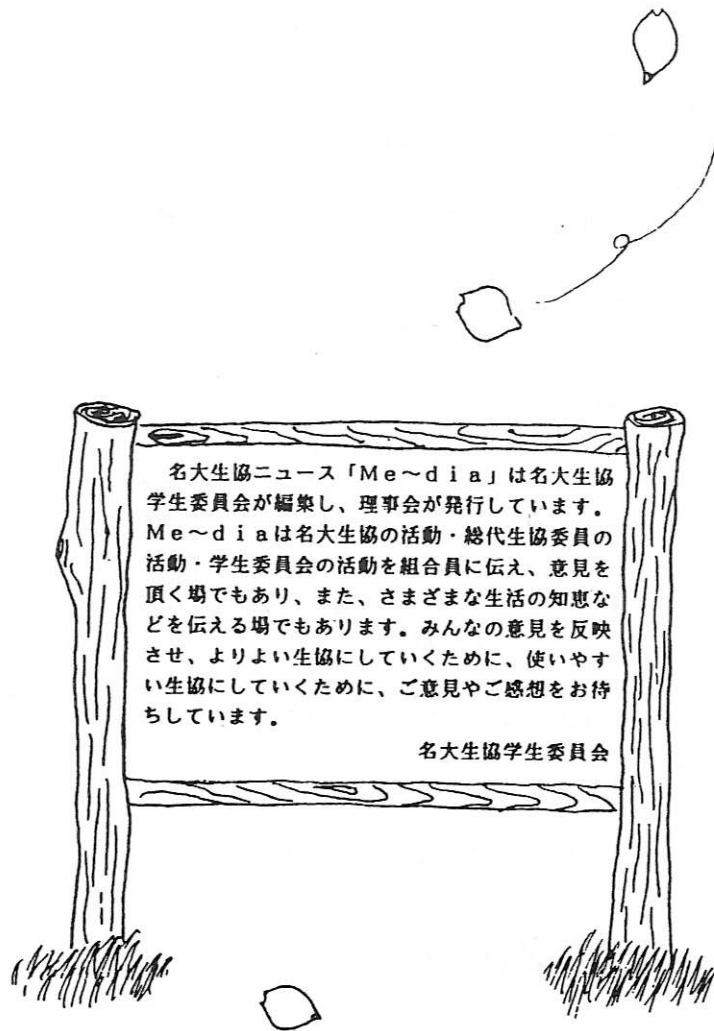 名大生協ニュース「Me～dia」は名大生協
学生委員会が編集し、理事会が発行しています。
Me～diaは名大生協の活動・総代生協委員の
活動・学生委員会の活動を組合員に伝え、意見を
頂く場でもあり、また、さまざまな生活の知恵な
どを伝える場でもあります。みんなの意見を反映
させ、よりよい生協にしていくために、使いやす
い生協にしていくために、ご意見やご感想をお待
ちしています。
名大生協学生委員会